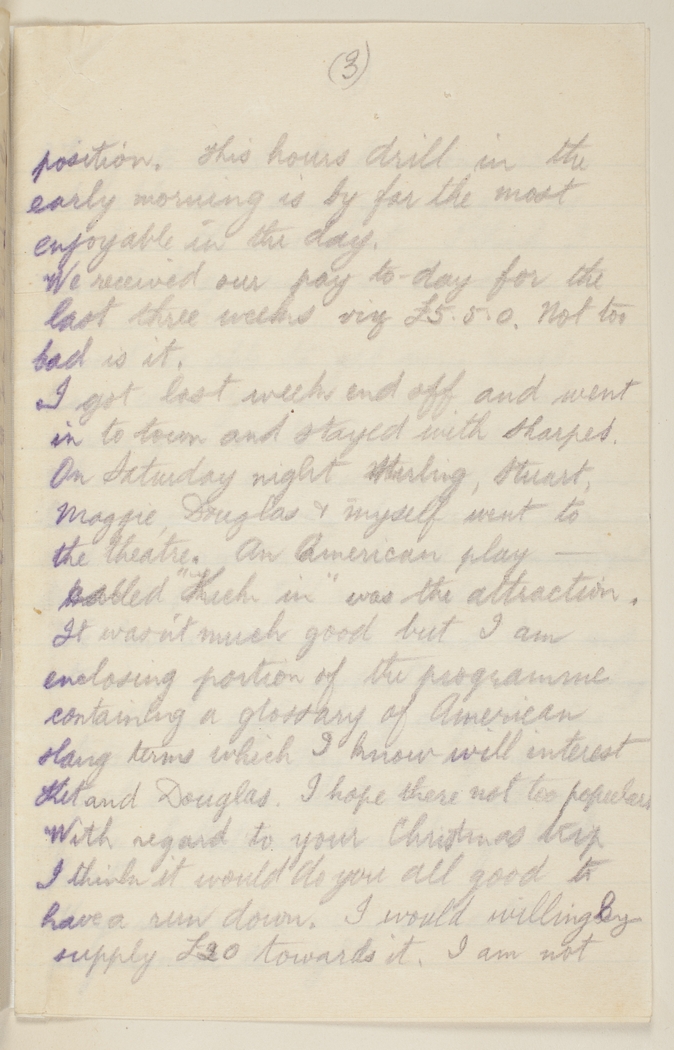 (3)
position. This hours drill in the
early morning is by far the most
enjoyable in the day.
We received our pay to-day for the
last three weeks viz £5.5.0. Not too
bad is it.
I got last week end off and went
in to town and stayed with Sharpes.
On Saturday night Stirling, Stuart,
Maggie, Douglas & myself went to
the theatre. An American play —
called "Kick in" was the attraction.
It wasn't much good but I am
enclosing portion of the programme
containing a glossary of American
slang terms which I know will interest
Ket and Douglas. I hope there not too popular
With regard to your Christmas trip
I think it would do you all good to
have a run down. I would willingly
supply £20 towards it. I am not